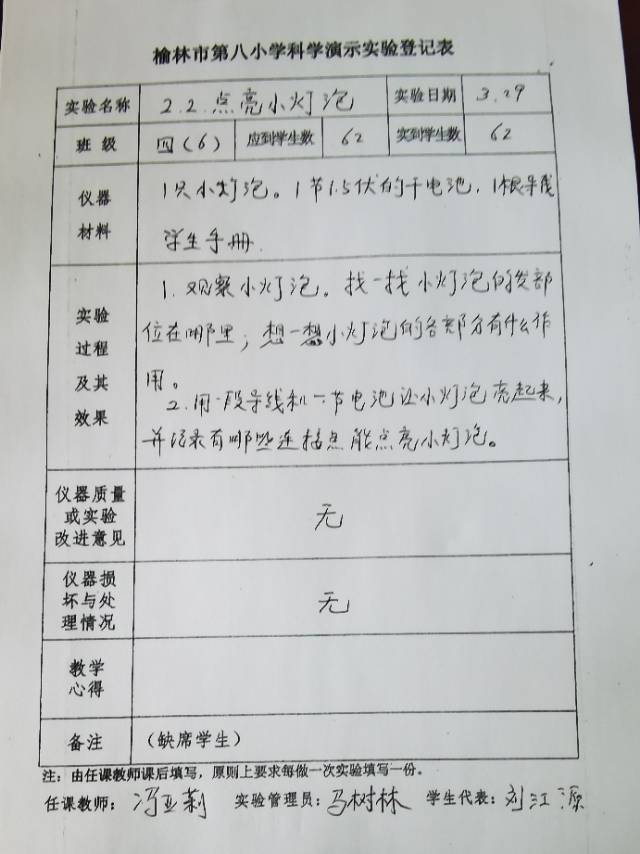 榆林市第八小学科学演示实验登记表
实验名称 2.2.点亮小灯泡 实验日期 3.29
班 级 四(6) 应到学生数 62 实到学生数 62
仪器 1只小灯泡。1节1.5伏的干电池,1根导线
材料 学生手册.
实验
过程
及其
效果
1.观察小灯泡。找一找小灯泡的发部
位在哪里;想一想小灯泡的各部分有什么作
用。
2.用一段导线和一节电池让小灯泡亮起来,
并记录有哪些连接点能点亮小灯泡。
仪器质量
或实验
改进意见
无
仪器损
坏与处
理情况
无
教学
心得
备注 (缺席学生)
注:由任课教师课后填写,原则上要求每做一次实验填写一份。
任课教师:冯亚莉 实验管理员:马树林 学生代表:刘江源